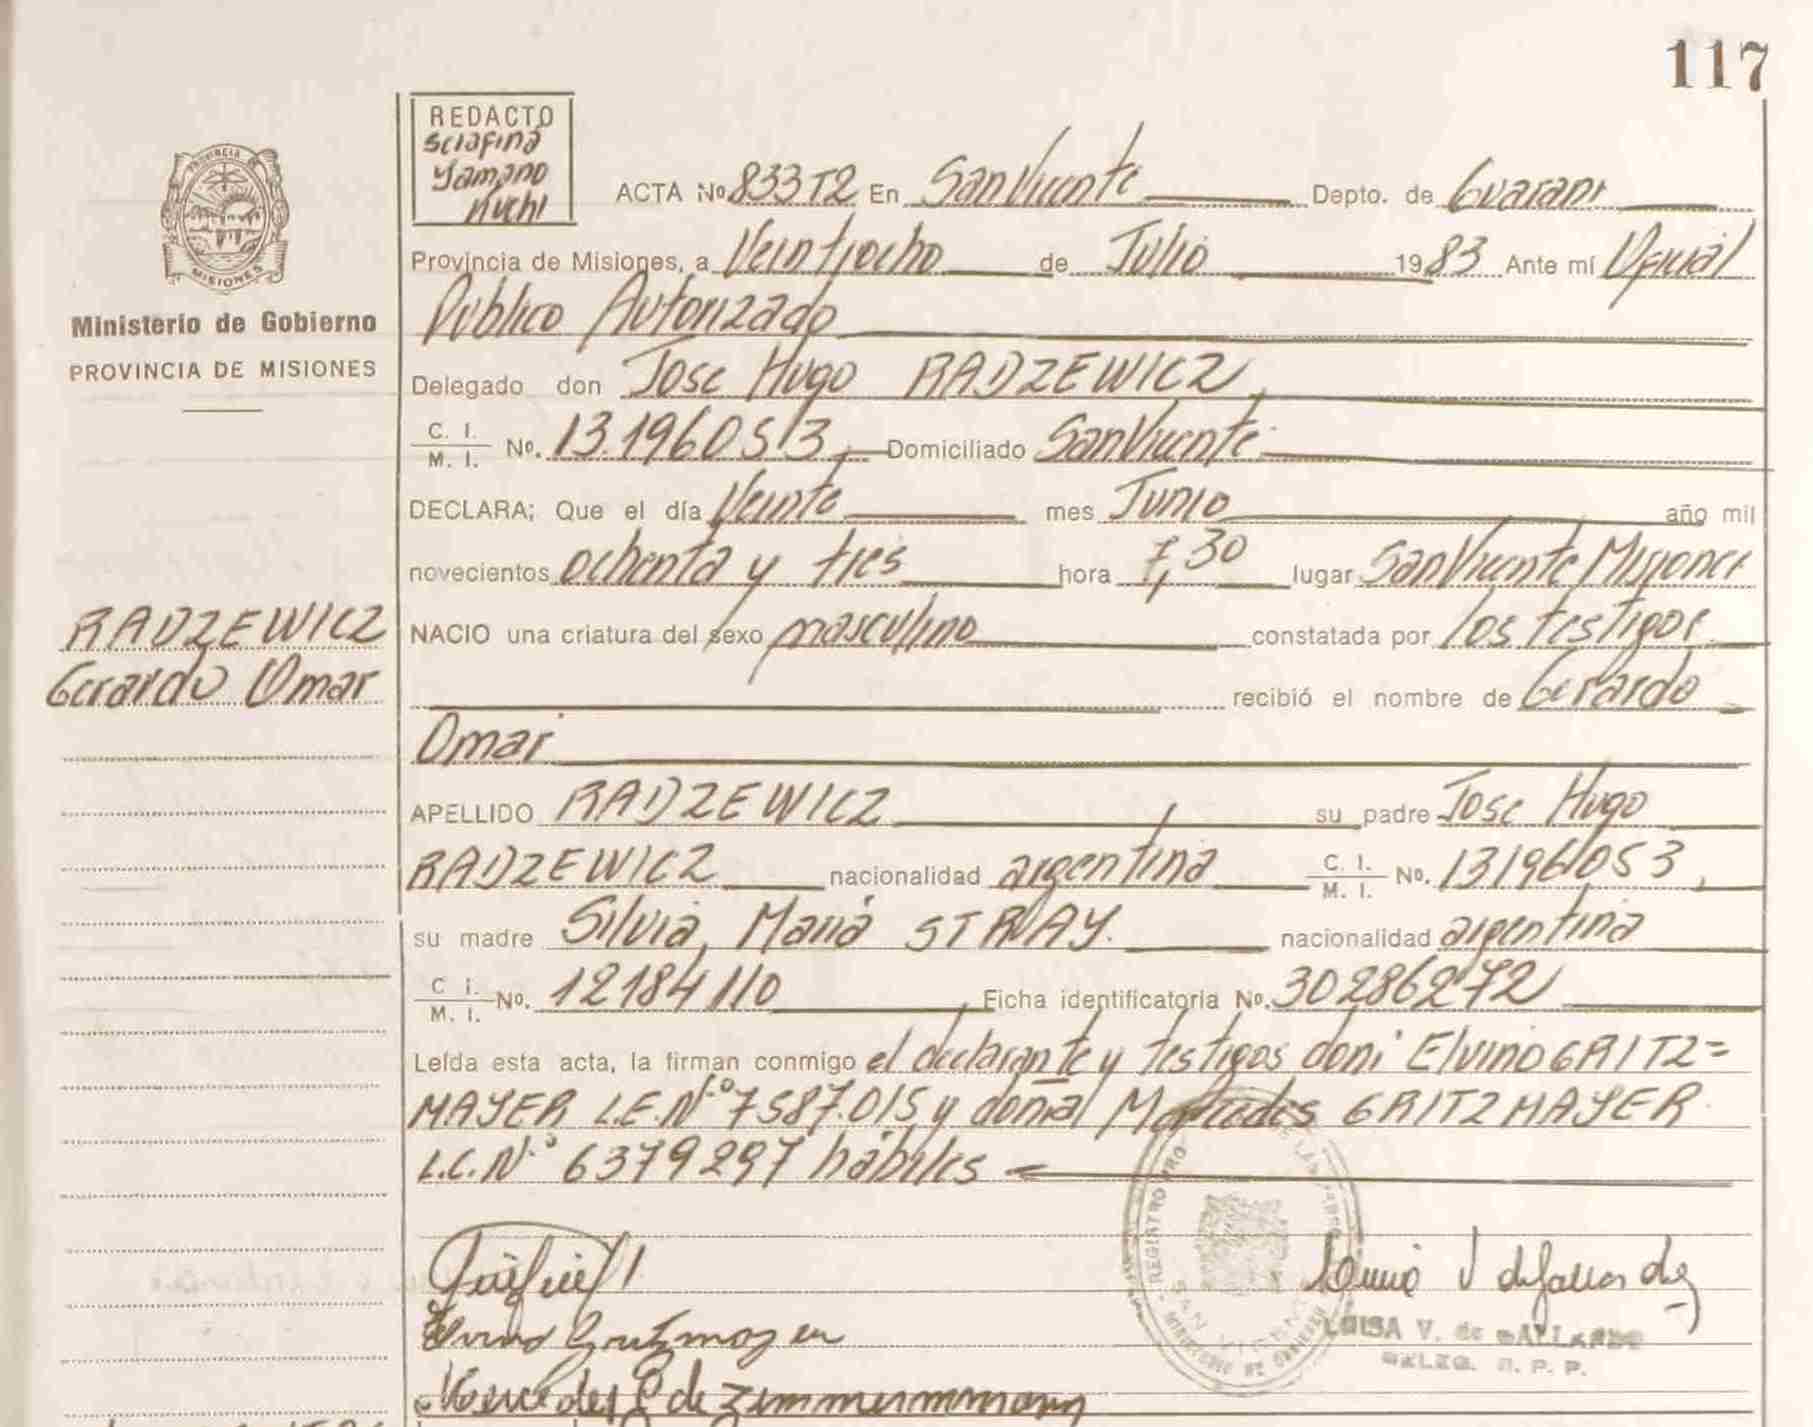 117
REDACTO
Yamano
ACTA No 833T2 En San Vicente Depto. de Guarani
Provincia de Misiones, a Veintiocho de Julio 1983 Ante mí Oficial
Público Autorizado
Delegado don Jose Hugo RADZEWICZ,
C. I. / M. I. No. 13.196053, Domiciliado San Vicente
DECLARA; Que el día Veinte mes Junio año mil
novecientos ochenta y tres hora 7,30 lugar San Vicente Misiones
NACIO una criatura del sexo masculino constatada por los testigos
recibió el nombre de Gerardo
Omar
APELLIDO RADZEWICZ, su padre Jose Hugo
RADZEWICZ nacionalidad argentina C. I. / M. I. No. 13196053,
su madre Silvia Maria STRAY. nacionalidad argentina
C. I. / M. I. No. 12184110, Ficha identificatoria No. 30286272
Leída esta acta, la firman conmigo el declarante y testigos don: Elvino GRITZ=
MAYER L.E.N.º 7587.015 y doña Mercedes GRITZMAYER.
L.C.N.º 6379297 hábiles
Mercedes G de Zimmermmann
LUISA V. de GALLARDO
DELEG. R. P. P.
REGISTRO PRO DE LAS PERSO
SAN VICENTE
MINISTERIO DE GOBIERNO
PROVINCIA DE
MISIONES
Ministerio de Gobierno
PROVINCIA DE MISIONES
RADZEWICZ
Gerardo Omar